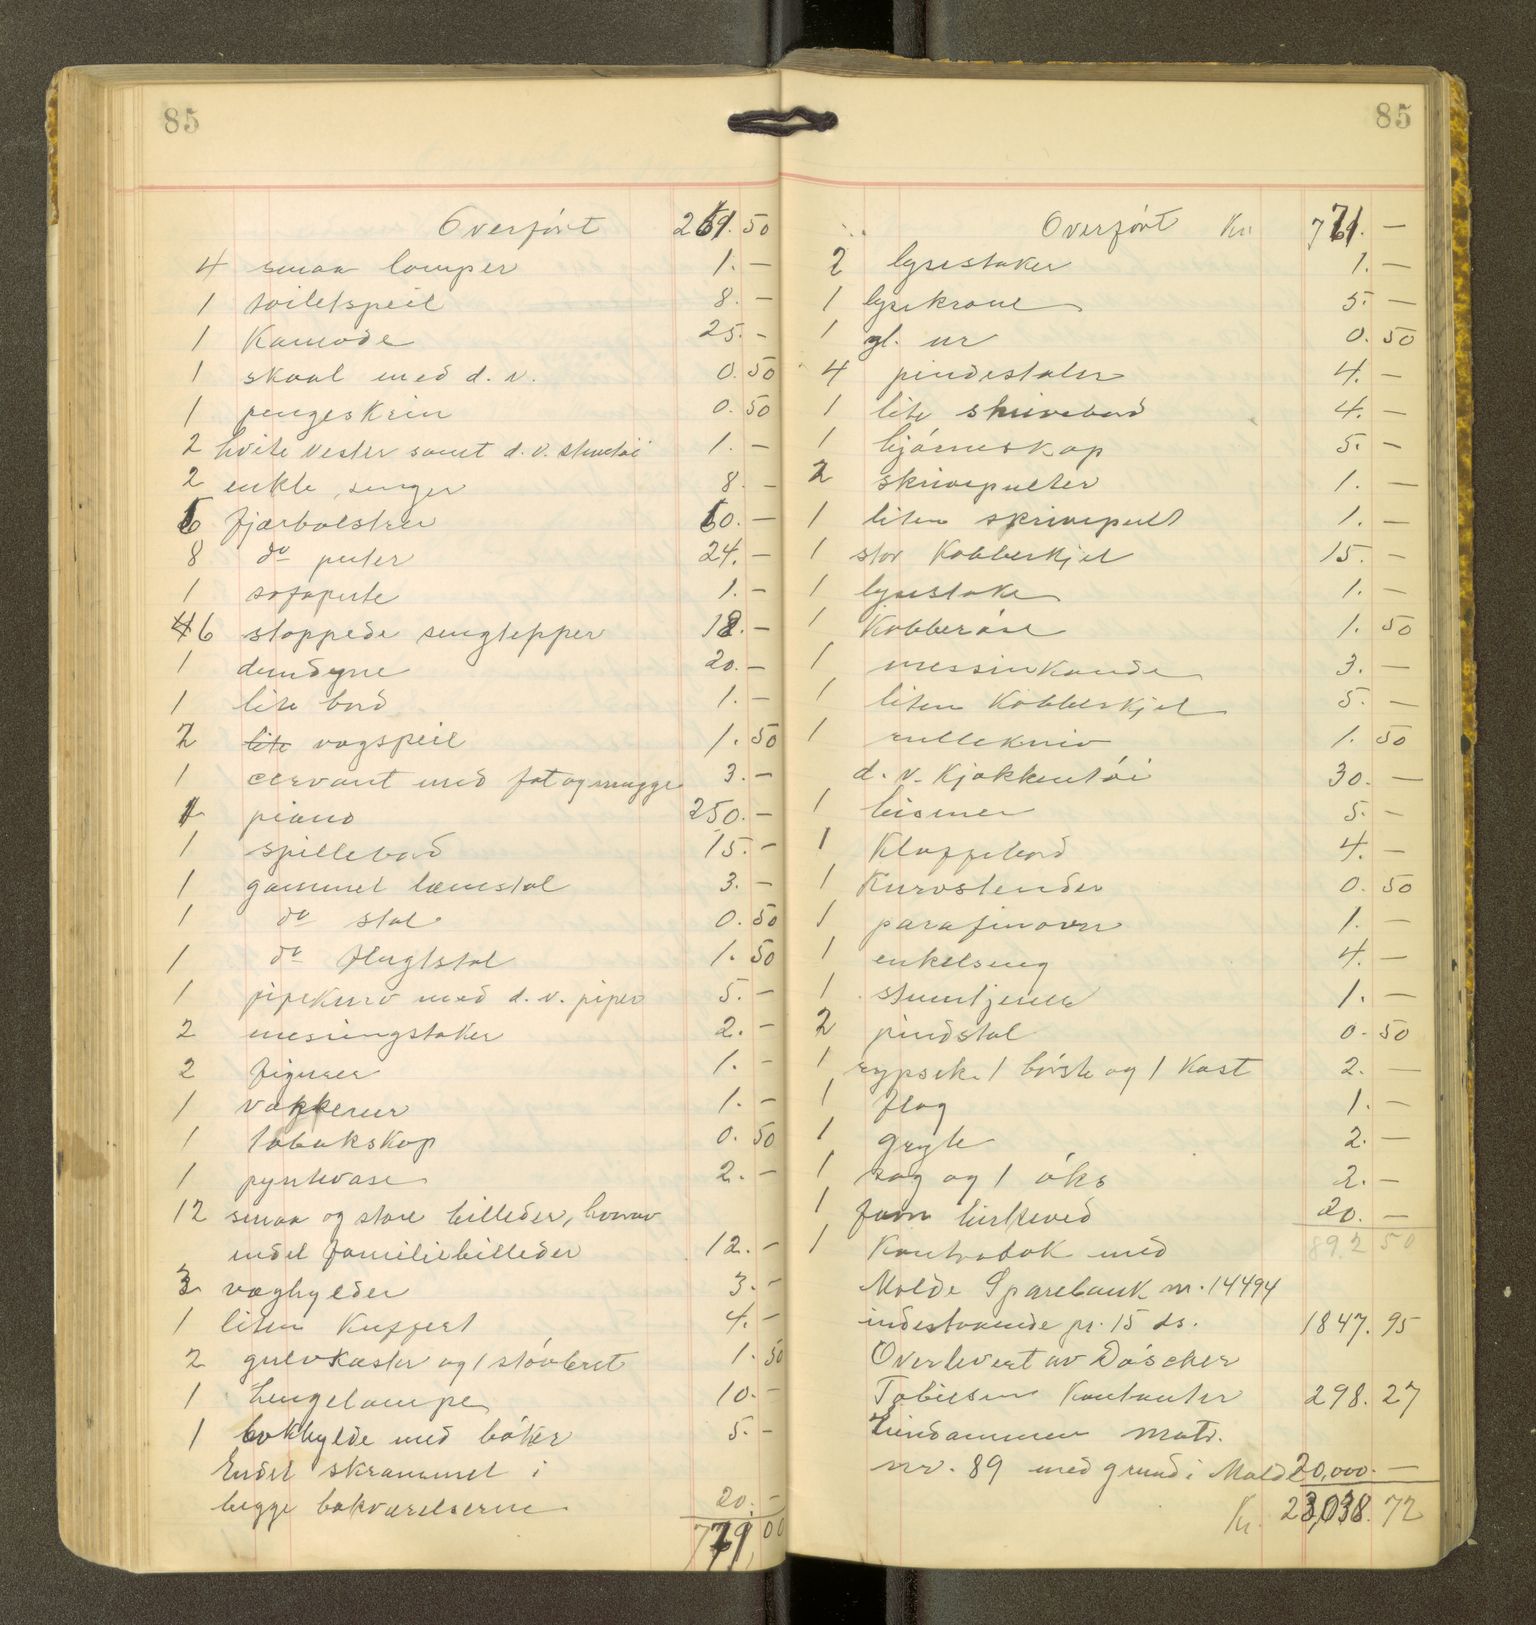 85
Overført 50
4 smaa lamper 1. —
1 toiletspeil 8. —
1 Kamode 25. —
1 skaal med d. v. 0. 50
1 pengeskrin 0. 50
2 hvite vester samt d. v. 1. —
2 enkle senger 8. —
fjærbolstrer —
8 do puter 24. —
1 sofapute 1. —
6 stoppede sengtepper —
1 dundyne 20. —
1 lite bord 1. —
2 lite vægspeil 1. 50
1 cervant med fat og mugge 3. —
1 piano 250. —
1 spillebord 15. —
1 gammel lænstol 3. —
1 do stol 0. 50
1 do flugtstol 1. 50
1 pipekurv med d. v. piper 5. —
2 mesingstaker 2. —
2 figurer 1. —
1 vækkerur 1. —
1 tobakskop 0. 50
1 pyntevase 2. —
12 smaa og store billeder, hvorav
endel familiebilleder 12. —
3 væghylder 3. —
1 liten Kuffert 4. —
2 gulvkaster og 1 støvbret 1. 50
1 hengelampe 10. —
1 bokhylde med bøker 5. —
Endel skrammel i
begge bakværelserne 20. —
00
85
Overført Kr. 771. —
2 lysestaker 1. —
1 lysekrone 5. —
1 gl. ur 0. 50
4 pindestoler 4. —
1 lite skrivebord 4. —
1 hjørneskap 5. —
2 skrivepulter 1. —
1 liten skrivepult 1. —
1 stor Kobberkjel 15. —
1 lysestake 1. —
1 Kobberøse 1. 50
1 messinkande 3. —
1 liten Kobberkjel 5. —
1 rullekniv 1. 50
d. v. Kjøkkentøi 30. —
1 bismer 5. —
1 Klaffebord 4. —
1 Kurvstender 0. 50
1 parafinovn 1. —
1 enkelseng 4. —
1 stumtjener 1. —
2 pindstol 0. 50
1 rypsek. 1 børste og 1 Kost 2. —
1 flag 1. —
1 gryte 2. —
1 sag og 1 øks 2. —
1 favn birkeved 20. —
892 50
1 Kontrabok med
Molde Sparebank nr. 14494
indestaaende pr. 15 ds. 1847. 95
Overlevert av Døscher
Tobiesen Kontanter 298. 27
Eiendommen matr.
nr. 89 med grund i Molde 20,000. —
Kr. 23,038. 72